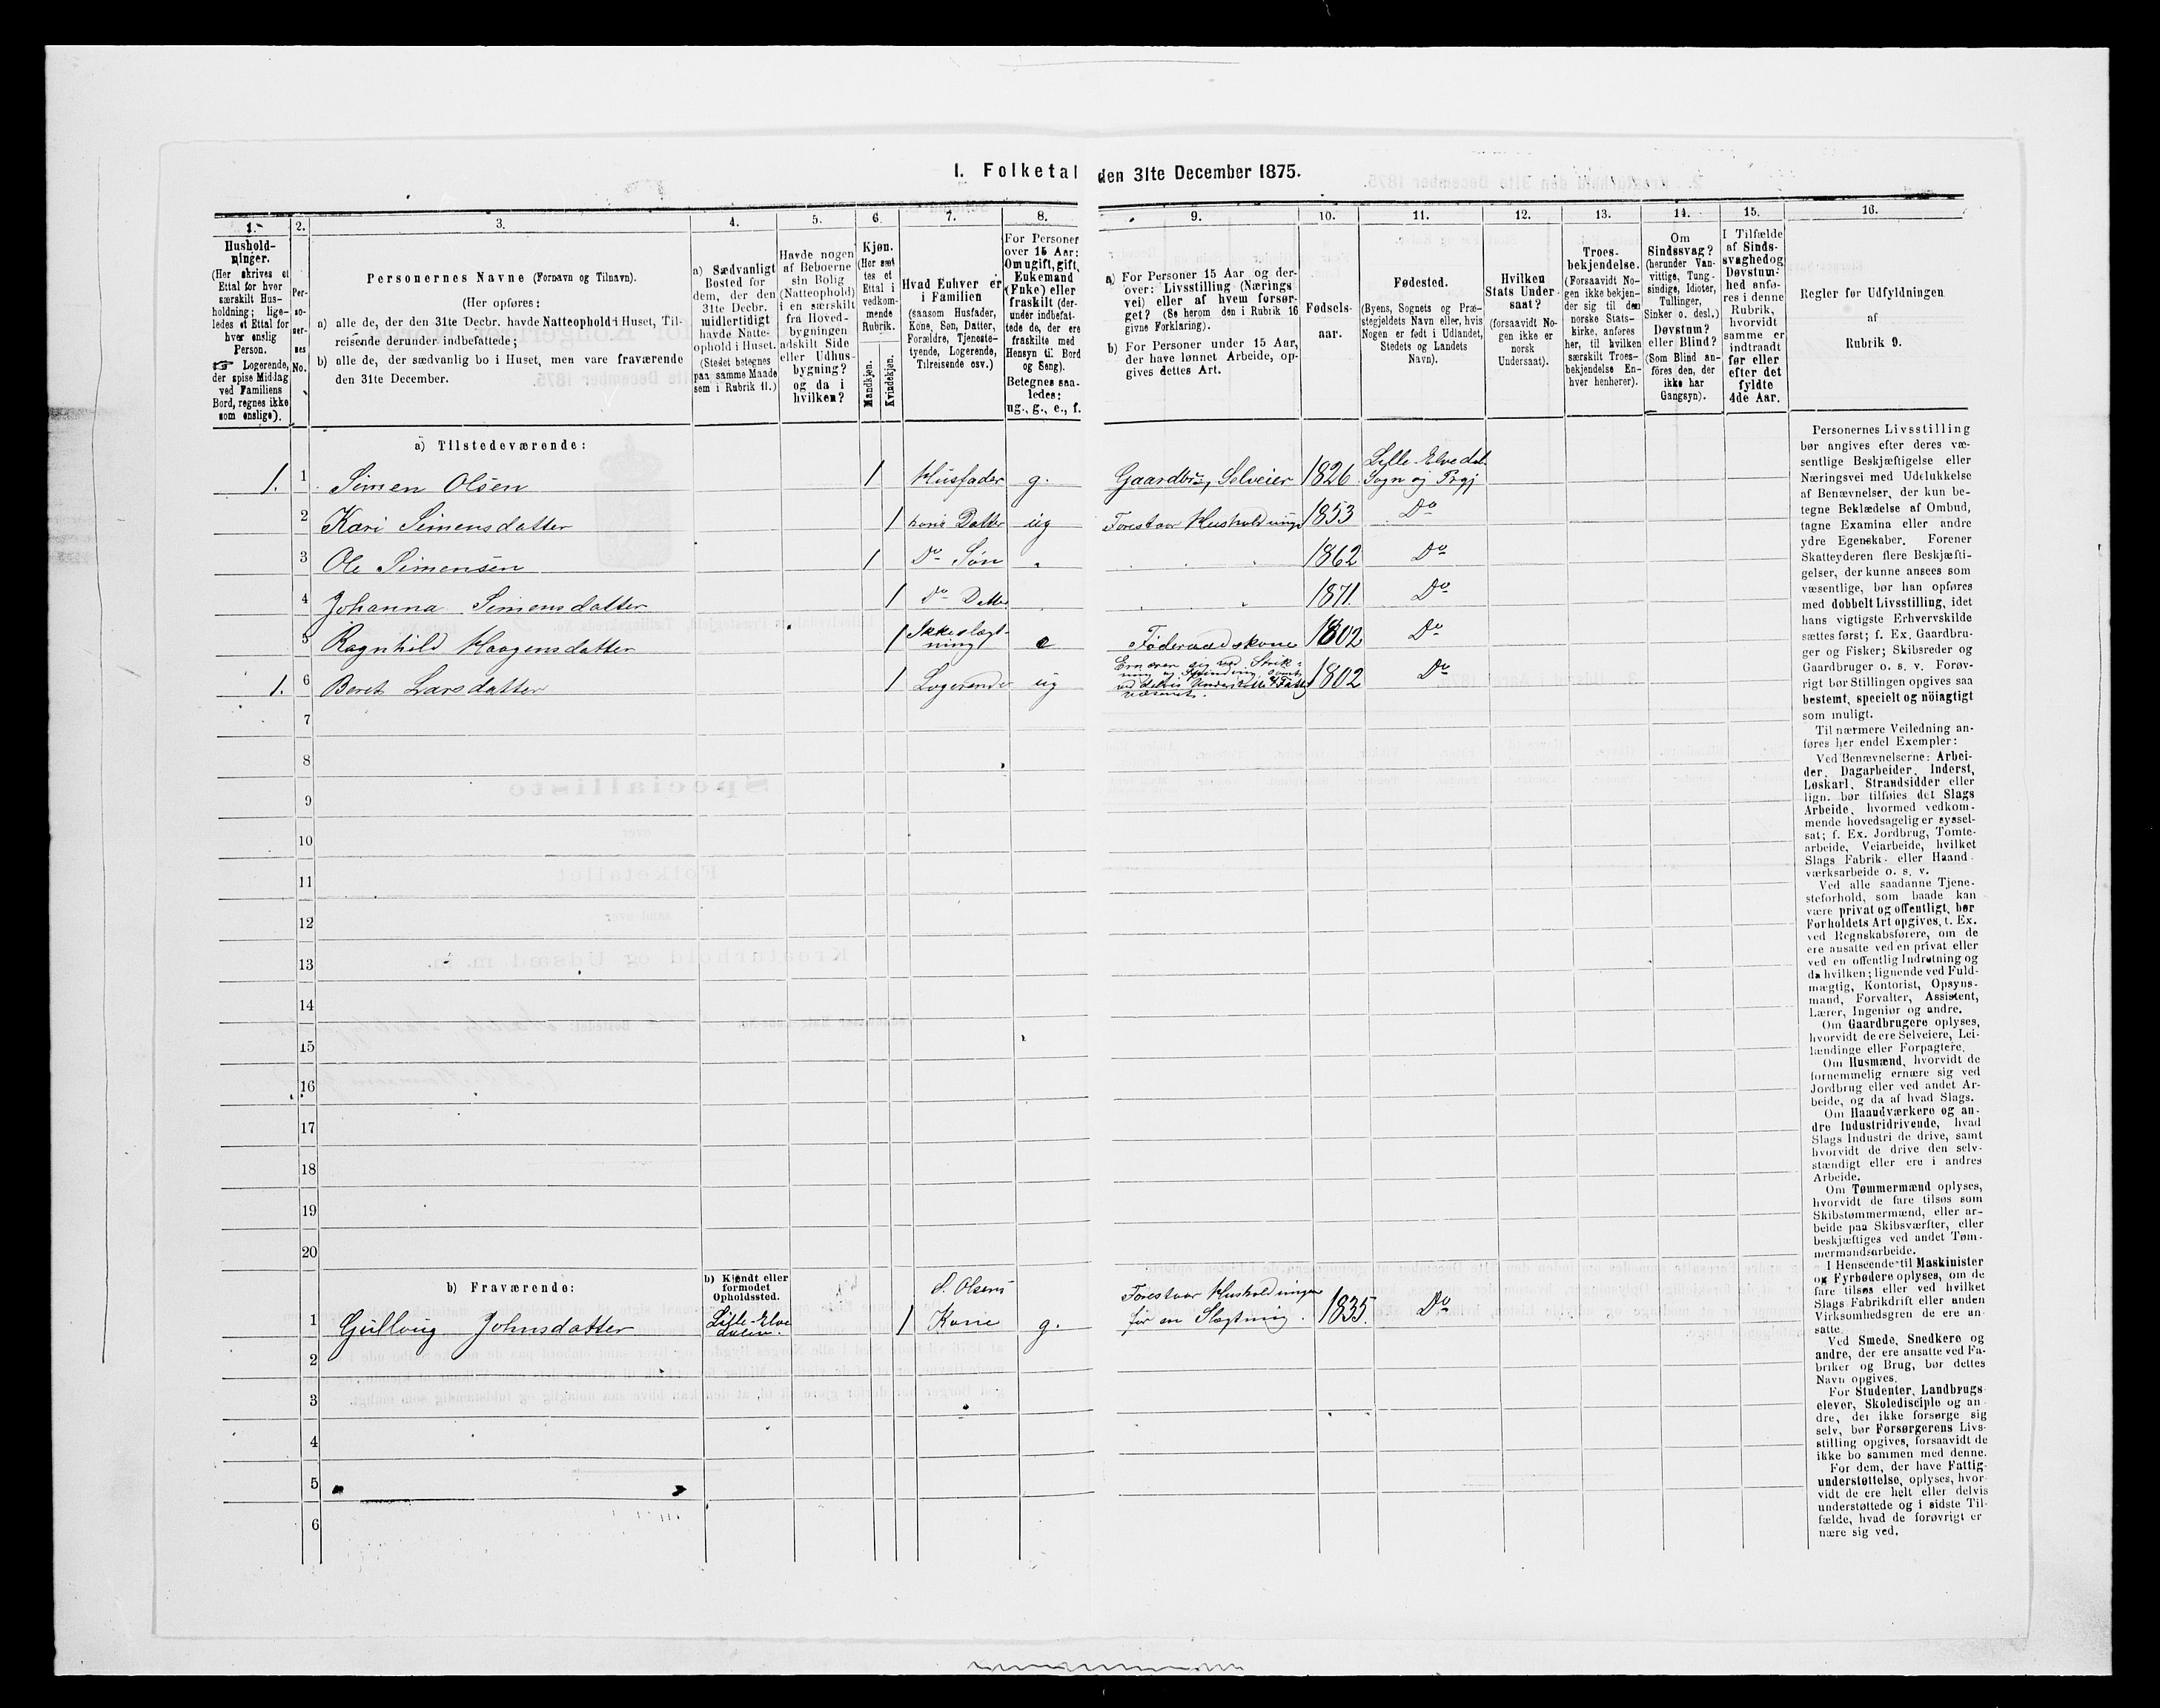 I. Folketal den 31te December 1875.
1.
Hushold-
ninger.
(Her skrives et
Ettal for hver
særskilt Hus-
holdning; lige-
ledes et Ettal for
hver enslig
Person.
☞ Logerende,
der spise Middag
ved Familiens
Bord, regnes ikke
som enslige).
2.
Per-
so-
ner-
nes
No.
3.
Personernes Navne (Fornavn og Tilnavn).
(Her opføres:
a) alle de, der den 31te Decbr. havde Natteophold i Huset, Til-
reisende derunder indbefattede;
b) alle de, der sædvanlig bo i Huset, men vare fraværende
den 31te December.
4.
a) Sædvanligt
Bosted for
dem, der den
31te Decbr.
midlertidigt
havde Natte-
ophold i Huset.
(Stedet betegnes
paa samme Maade
sem i Rubrik 11.)
5.
Havde nogen
af Beboerne
sin Bolig
(Natteophold)
i en særskilt
fra Hoved-
bygningen
adskilt Side
eller Udhus-
bygning?
og da i
hvilken?
6.
Kjøn.
(Her sæt
tes et
Ettal i
vedkom-
mende
Rubrik.
Mandkjøn.
Kvindekjøn.
7.
Hvad Enhver er
i Familien
(saasom Husfader,
Kone, Søn, Datter,
Forældre, Tjeneste-
tyende, Logerende,
Tilreisende osv.)
8.
For Personer
over 15 Aar:
Om ugift, gift,
Enkemand
(Enke) eller
fraskilt (der-
under indbefat-
tede de, der ere
fraskilte med
Hensyn til Bord
og Seng).
Betegnes saa-
ledes:
ug., g., e., f.
9.
a) For Personer 15 Aar og der-
over: Livsstilling (Nærings
vei) eller af hvem forsør-
get? (Se herom den i Rubrik 16
givne Forklaring).
b) For Personer under 15 Aar,
der have lønnet Arbeide, op-
gives dettes Art.
10.
Fødsels-
aar.
11.
Fødested.
(Byens, Sognets og Præ-
stegjeldets Navn eller, hvis
Nogen er født i Udlandet,
Stedets og Landets
Navn).
12.
Hvilken
Stats Under-
saat?
(forsaavidt No-
gen ikke er
norsk
Undersaat).
13.
Troes-
bekjendelse.
(Forsaavidt No-
gen ikke bekjen-
der sig til den
norske Stats-
kirke, anføres
her, til hvilken
særskilt Troes-
bekjendelse En-
hver henhører).
14.
Om
Sindssvag?
(herunder Van-
vittige, Tung-
sindige, Idioter,
Tullinger,
Sinker o. desl.)
Døvstum?
eller Blind?
(Som Blind an-
föres den, der
ikke har
Gangsyn).
15.
I Tilfælde
af Sinds-
svaghed og
Døvstum-
hed anfø-
res i denne
Rubrik,
hvorvidt
samme er
indtraadt
før eller
efter det
fyldte
4de Aar.
16.
Regler for Udfyldningen
af
Rubrik 9.
a) Tilstedeværende:
1. 1 Simen Olsen 1 Husfader g. Gaardbr, Selveier 1826 Lille-Elvedal Sogn og Prgj
2 Kari Simensdatter 1 hans Datter ug Forestaar Husholdning 1853 Do
3 Ole Simensen 1 Do Søn 1862 Do
4 Johanna Simensdatter 1 Do Datter 1871 Do
5 Ragnhild Haagensdatter 1 Ikke slægt-ning e Føderaadskone 1802 Do
1. 6 Beret Larsdatter 1 Logerende ug Ernærer sig ved Strik-
ning og Spinding, samt
ved delvis Understøtt. af Fattig
væsenet. 1802 Do
7
8
9
10
11
12
13
14
15
16
17
18
19
20
b) Fraværende:
b) Kjendt eller
formodet
Opholdssted.
1 Gulloug Johnsdatter Lille-Elvedalen. 1 S. Olsens Kone g. Forestaar Husholdningen
for en Slægtning. 1835. Do
2
3
4
5
6
Personernes Livsstilling
bør angives efter deres væ-
sentlige Beskjæftigelse eller
Næringsvei med Udelukkelse
af Benævnelser, der kun be-
tegne Beklædelse af Ombud,
tagne Examina eller andre
ydre Egenskaber. Forener
Skatteyderen flere Beskjæfti-
gelser, der kunne ansees som
væsentlige, bør han opføres
med dobbelt Livsstilling, idet
hans vigtigste Erhvervskilde
sættes først; f. Ex. Gaardbru-
ger og Fisker; Skibsreder og
Gaardbruger o. s. v. Forøv-
rigt bør Stillingen opgives saa
bestemt, specielt og nöiagtigt
som muligt.
Til nærmere Veiledning an-
føres her endel Exempler:
Ved Benævnelserne: Arbei-
der, Dagarbeider, Inderst,
Løskarl, Strandsidder eller
lign. bør tilføies det Slags
Arbeide, hvormed vedkom-
mende hovedsagelig er syssel-
sat; f. Ex. Jordbrug, Tomte-
arbeide, Veiarbeide, hvilket
Slags Fabrik- eller Haand-
værksarbeide o. s. v.
Ved alle saadanne Tjene-
steforhold, som baade kan
være privat og offentligt, bør
Forholdets Art opgives, t. Ex.
ved Regnskabsførere, om de
ere ansatte ved en privat eller
ved en offentlig Indretning og
da hvilken; lignende ved Fuld-
mægtig, Kontorist, Opsyns-
mand, Forvalter, Assistent,
Lærer, Ingeniør og andre.
Om Gaardbrugere oplyses,
hvorvidt de ere Selveiere, Lei-
lændinge eller Forpagtere.
Om Husmænd, hvorvidt de
fornemmelig ernære sig ved
Jordbrug eller ved andet Ar-
beide, og da af hvad Slags.
Om Haandværkere og an-
dre Industridrivende, hvad
Slags Industri de drive, samt
hvorvidt de drive den selv-
stændigt eller ere i andres
Arbeide.
Om Tømmermænd oplyses,
hvorvidt de fare tilsøs som
Skibstømmermænd, eller ar-
beide paa Skibsværfter, eller
beskjæftiges ved andet Tøm-
mermandsarbeide.
I Henseende til Maskinister
og Fyrbødere oplyses, om de
fare tilsøs eller ved hvilket
Slags Fabrikdrift eller anden
Virksomhedsgren de ere an-
satte.
Ved Smede, Snedkere og
andre, der ere ansatte ved Fa-
briker og Brug, bør dettes
Navn opgives.
For Studenter, Landbrugs-
elever, Skoledisciple og an-
dre, der ikke forsørge sig
selv, bør Forsørgerens Livs-
stilling opgives, forsaavidt de
ikke bo sammen med denne.
For dem, der have Fattig-
understøttelse, oplyses, hvor-
vidt de ere helt eller delvis
understøttede og i sidste Til-
fælde, hvad de forøvrigt er
nære sig ved.